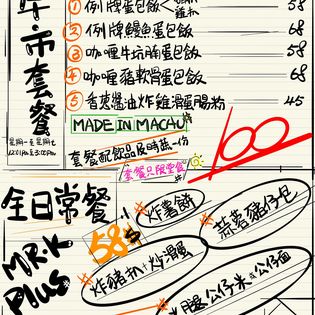 午市套餐
星期一至星期七
12:01PM至3:00PM
① 例牌蛋包飯 58
② 例牌鰻魚蛋包飯 68
③ 咖哩牛坑腩蛋包飯 58
④ 咖哩豬軟骨蛋包飯 68
⑤ 香蔥醬油炸雞滑蛋腸粉 45
MADE IN MACAU
100
套餐配飲品及時蔬一份
套餐只限堂食
全日常餐
MR.K
Plus
58$
炸薯餅
蒜蓉豬仔包
炸豬扒+炒滑蛋
火腿公仔米or公仔面